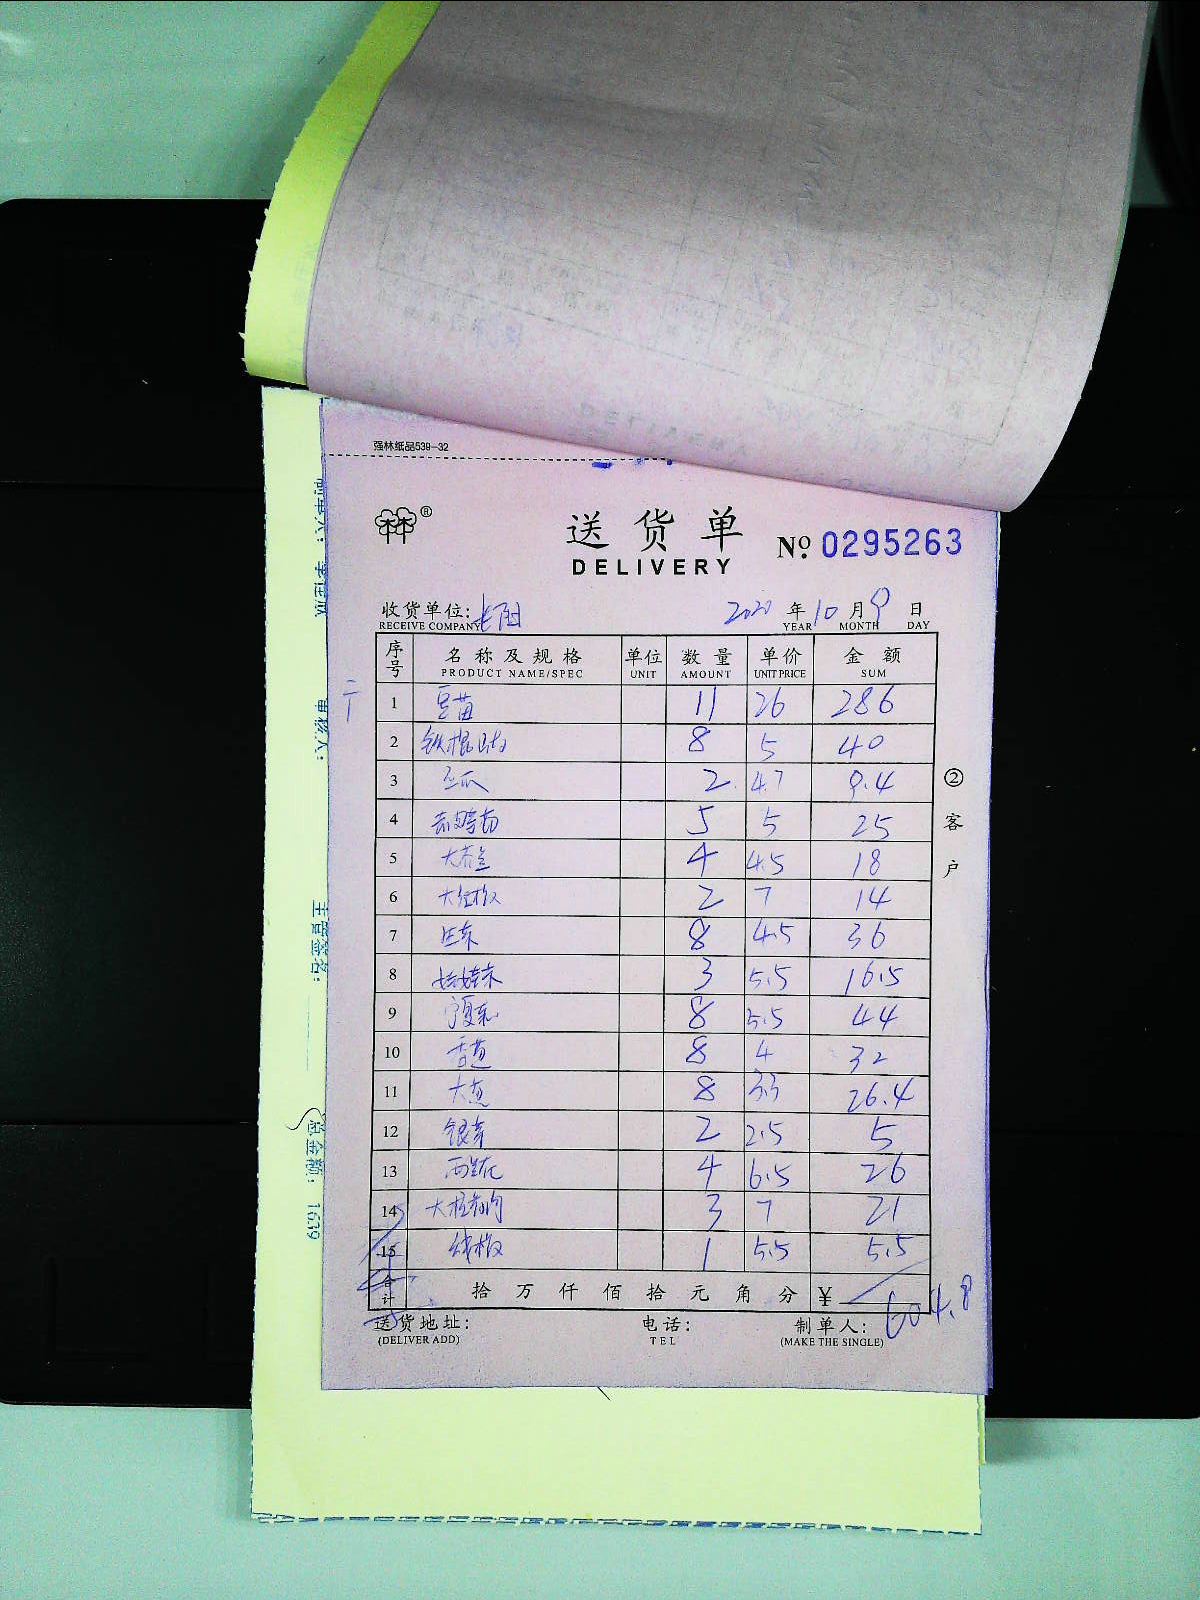 强林纸品539-32
送货单
DELIVERY
№ 0295263
收货单位:
2020 年 10 月 9 日
RECEIVE COMPANY YEAR MONTH DAY
序号 名称及规格 单位 数量 单价 金额
PRODUCT NAME/SPEC UNIT AMOUNT UNIT PRICE SUM
1 豆苗 11 26 286
2 铁棍 8 5 40
3 2 4.7 9.4
4 5 5 25
5 4 4.5 18
6 大红椒 2 7 14
7 8 4.5 36
8 娃娃菜 3 5.5 16.5
9 宁夏菜心 8 5.5 44
10 香葱 8 4 32
11 大葱 8 3.3 26.4
12 银芽 2 2.5 5
13 西兰花 4 6.5 26
14 3 7 21
15 线椒 1 5.5 5.5
合计 拾万仟佰拾元角分 ¥ 604.8
送货地址: 电话: 制单人:
(DELIVER ADD) TEL (MAKE THE SINGLE)
②客户
审核人:
主管签名:
总金额: 1639